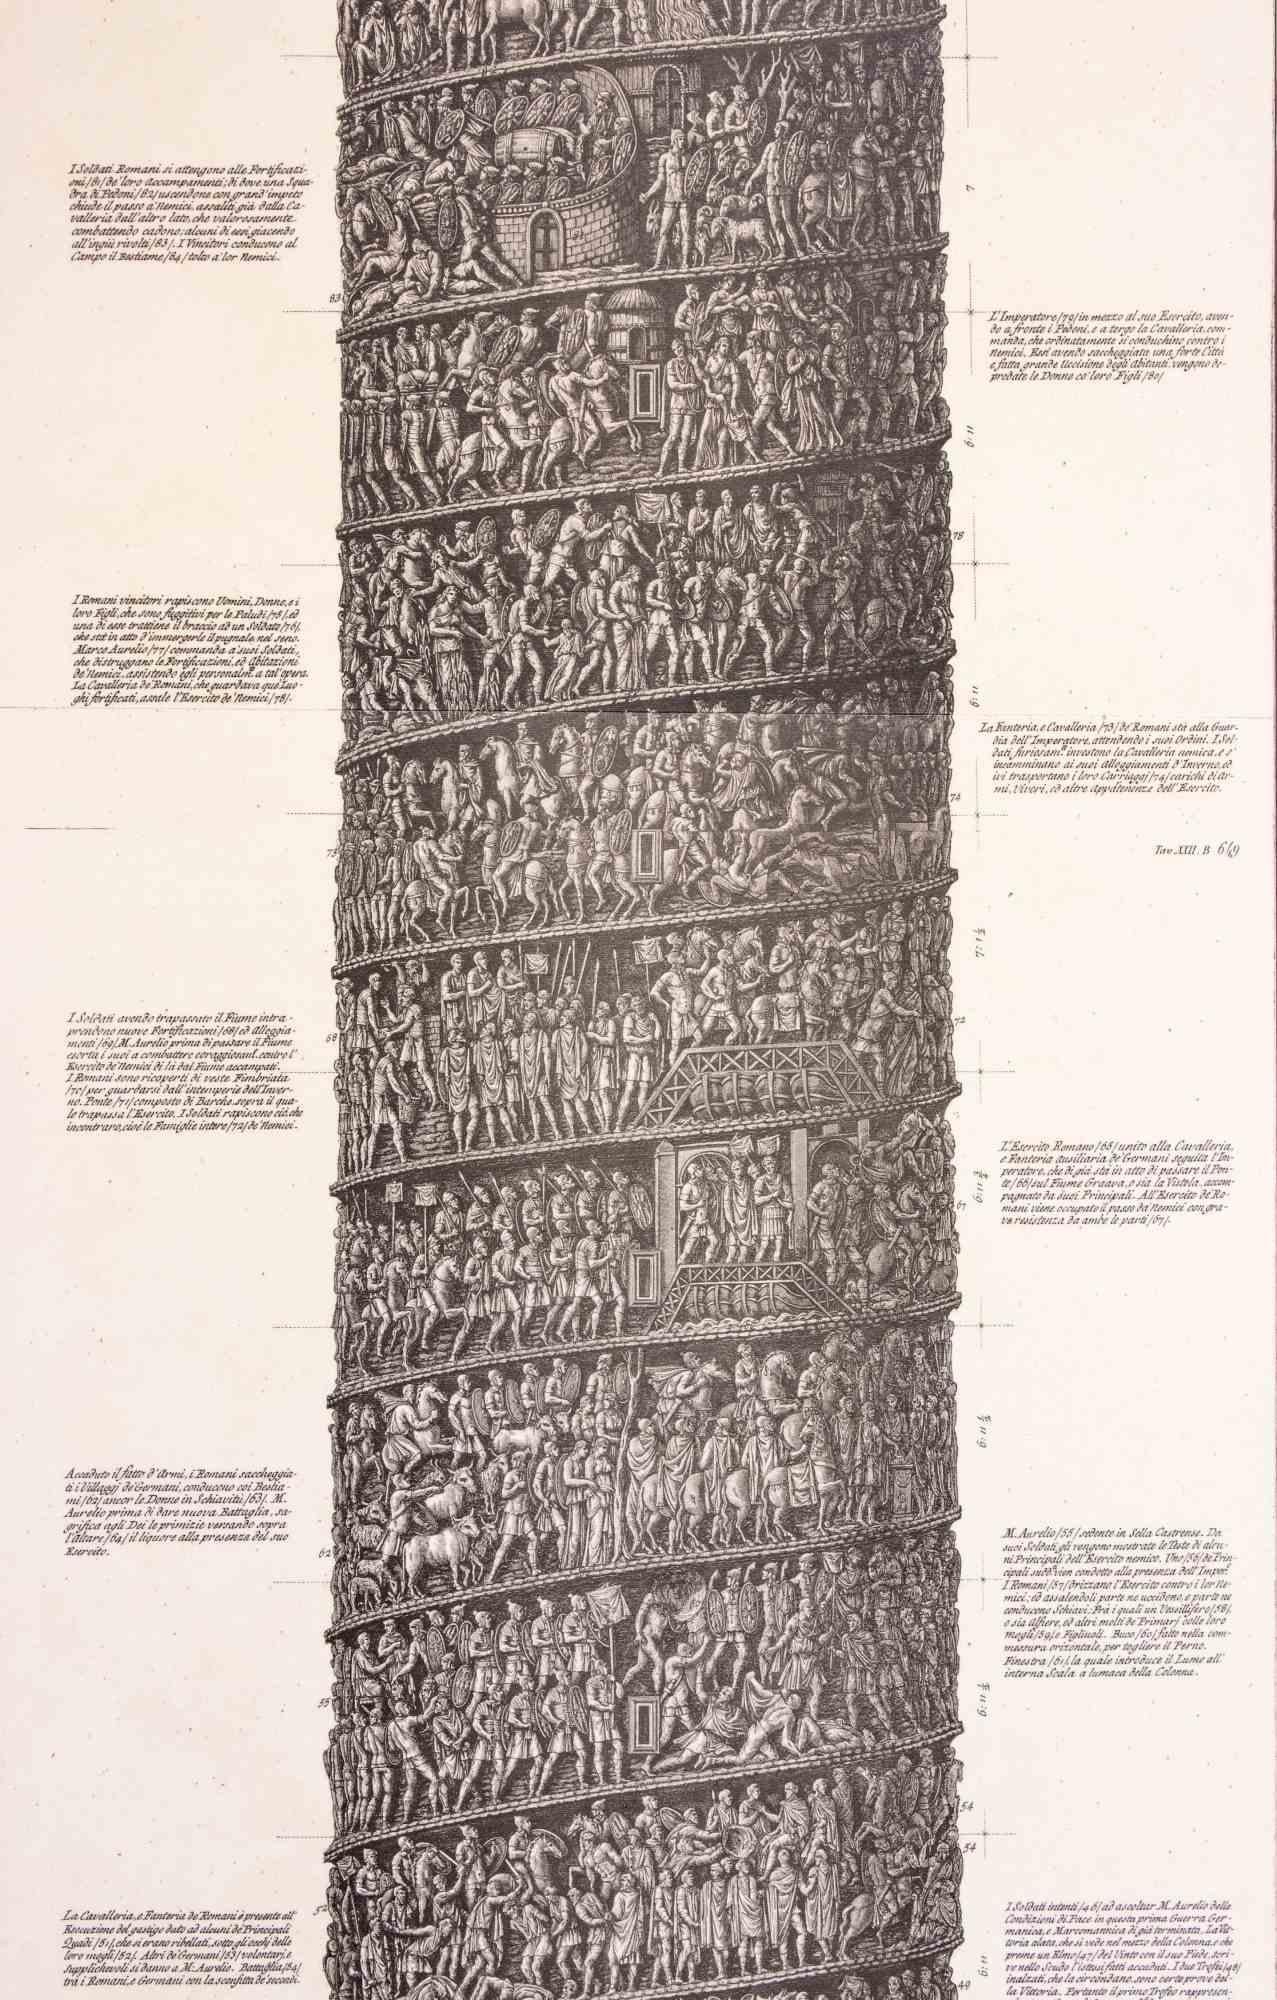 I Soldati Romani si attengono alle Fortificazi-
oni /81/ de' loro accampamenti; di dove una Squa-
dra di Pedoni /82/ uscendone con grand' impeto
chiude il passo a' Nemici, assaliti già dalla Ca-
valleria dall' altro lato, che valorosamente
combattendo cadono; alcuni di essi giacendo
all' ingiù rivolti /83/. I Vincitori conducono al
Campo il Bestiame /84/ tolto a' lor Nemici.
83
7
L'Imperatore /79/ in mezzo al suo Esercito, aven-
do a fronte i Pedoni, e a tergo la Cavalleria, com-
manda, che ordinatamente si conduchino contro i
Nemici. Essi avendo saccheggiata una forte Città
e fatta grande Uccisione degli Abitanti, vengono de-
predate le Donne co' loro Figli /80/
6:11
78
I Romani vincitori rapiscono Uomini, Donne, e i
loro Figli, che sono fuggitivi per le Paludi /75/, ed
una di esse trattiene il braccio ad un Soldato /76/,
che stà in atto d'immergerle il pugnale nel seno.
Marco Aurelio /77/ commanda a' suoi Soldati,
che distruggano le Fortificazioni, ed Abitazioni
de' Nemici, assistendo egli personalm.e a tal' opera.
La Cavalleria de' Romani, che guardava que' Luo-
ghi fortificati, assale l'Esercito de' Nemici /78/.
6:11
La Fanteria, e Cavalleria /73/ de' Romani stà alla Guar-
dia dell' Imperatore, attendendo i suoi Ordini. I Sol-
dati furiosam.e investono la Cavalleria nemica, e s'
incamminano ai suoi alloggiamenti d'Inverno, ed
ivi trasportano i loro Carriaggj /74/ carichi di ar-
mi, Viveri, ed altre appartenenze dell' Esercito.
74
73
Tav. XXII. B 649
7:1½
I Soldati avendo trapassato il Fiume intra-
prendono nuove Fortificazioni /68/ ed Alloggia-
menti /69/. M. Aurelio prima di passare il Fiume
esorta i suoi a combattere coraggiosam.e contro l'
Esercito de' Nemici di là dal Fiume accampati.
I Romani sono ricoperti di veste Fimbriata
/70/ per guardarsi dall' intemperie dell' Inver-
no. Ponte /71/ composto di Barche, sopra il qua-
le trapassa l'Esercito. I Soldati rapiscono ciò, che
incontrano, cioè le Famiglie intere /72/ de' Nemici.
68
72
L'Esercito Romano /65/ unito alla Cavalleria,
e Fanteria ausiliaria de' Germani seguita l'Im-
peratore, che di già stà in atto di passare il Pon-
te /66/ sul Fiume Graava, o sia la Vistola, accom-
pagnato da suoi Principali. All' Esercito de' Ro-
mani viene occupato il passo da Nemici con gra-
ve resistenza da ambe le parti /67/.
67
Accaduto il fatto d'Armi, i Romani saccheggia-
ti i Villaggj de' Germani, conducono coi Bestia-
mi /62/ ancor le Donne in Schiavitù /63/. M.
Aurelio prima di dare nuova Battaglia, sa-
grifica agli Dei le primizie versando sopra
l'Altare /64/ il liquore alla presenza del suo
Esercito.
62
M. Aurelio /55/ sedente in Sella Castrense. Da
suoi Soldati gli vengono mostrate le Teste di alcu-
ni Principali dell' Esercito nemico. Uno /56/ de' Prin-
cipali sudd.i vien condotto alla presenza dell' Imper.e
I Romani /57/ drizzano l'Esercito contro i lor Ne-
mici; ed assalendoli parte ne uccidono, e parte ne
conducono Schiavi; Frà i quali un Vessillifero /58/,
o sia Alfiere, ed altri molti de' Primarj colle loro
mogli /59/ e Figliuoli. Buco /60/ fatto nella com-
messura orizontale, per togliere il Perno.
Finestra /61/, la quale introduce il Lume all'
interna Scala a lumaca della Colonna.
55
54
54
52
La Cavalleria, e Fanteria de' Romani è presente all'
Esecuzione del gastigo dato ad alcuni de' Principali
Quadi /51/, che si erano ribellati, sotto gli occhj delle
loro mogli /52/. Altri de' Germani /53/ volontarj, e
supplichevoli si danno a M. Aurelio. Battaglia /54/
trà i Romani, e Germani con la sconfitta de' secondi.
I Soldati intenti /46/ ad ascoltar M. Aurelio delle
Condizioni di Pace in questa prima Guerra Ger-
manica, e Marcomannica di già terminata. La Vit-
toria alata, che si vede nel mezzo della Colonna, e che
preme un Elmo /47/ del Vinto con il suo Piede, scri-
ve nello Scudo l'istessi fatti accaduti. I due Trofei /48/
inalzati, che la circondano, sono certe prove del-
la Vittoria. Pertanto il primo Trofeo rappresen-
49
6:11